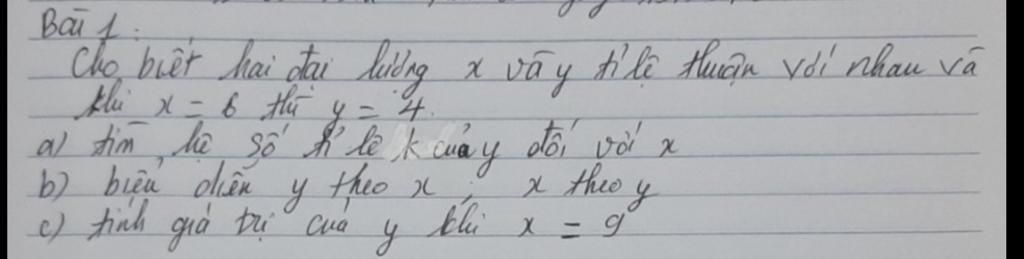 Bài 1:
Cho biết hai đại lượng x và y tỉ lệ thuận với nhau và
khi x = 6 thì y = 4.
a) tìm hệ số tỉ lệ k của y đối với x
b) biểu diễn y theo x; x theo y
c) tính giá trị của y khi x = 9